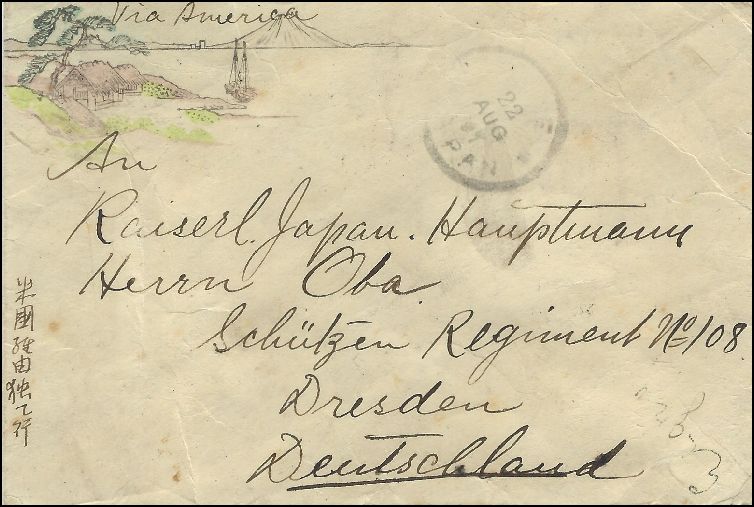 Via America
22
AUG
PAN
An
Kaiserl. Japan. Hauptmann
Herrn Oba
Schützen Regiment No 108
Dresden
Deutschland
米國経由独乙行